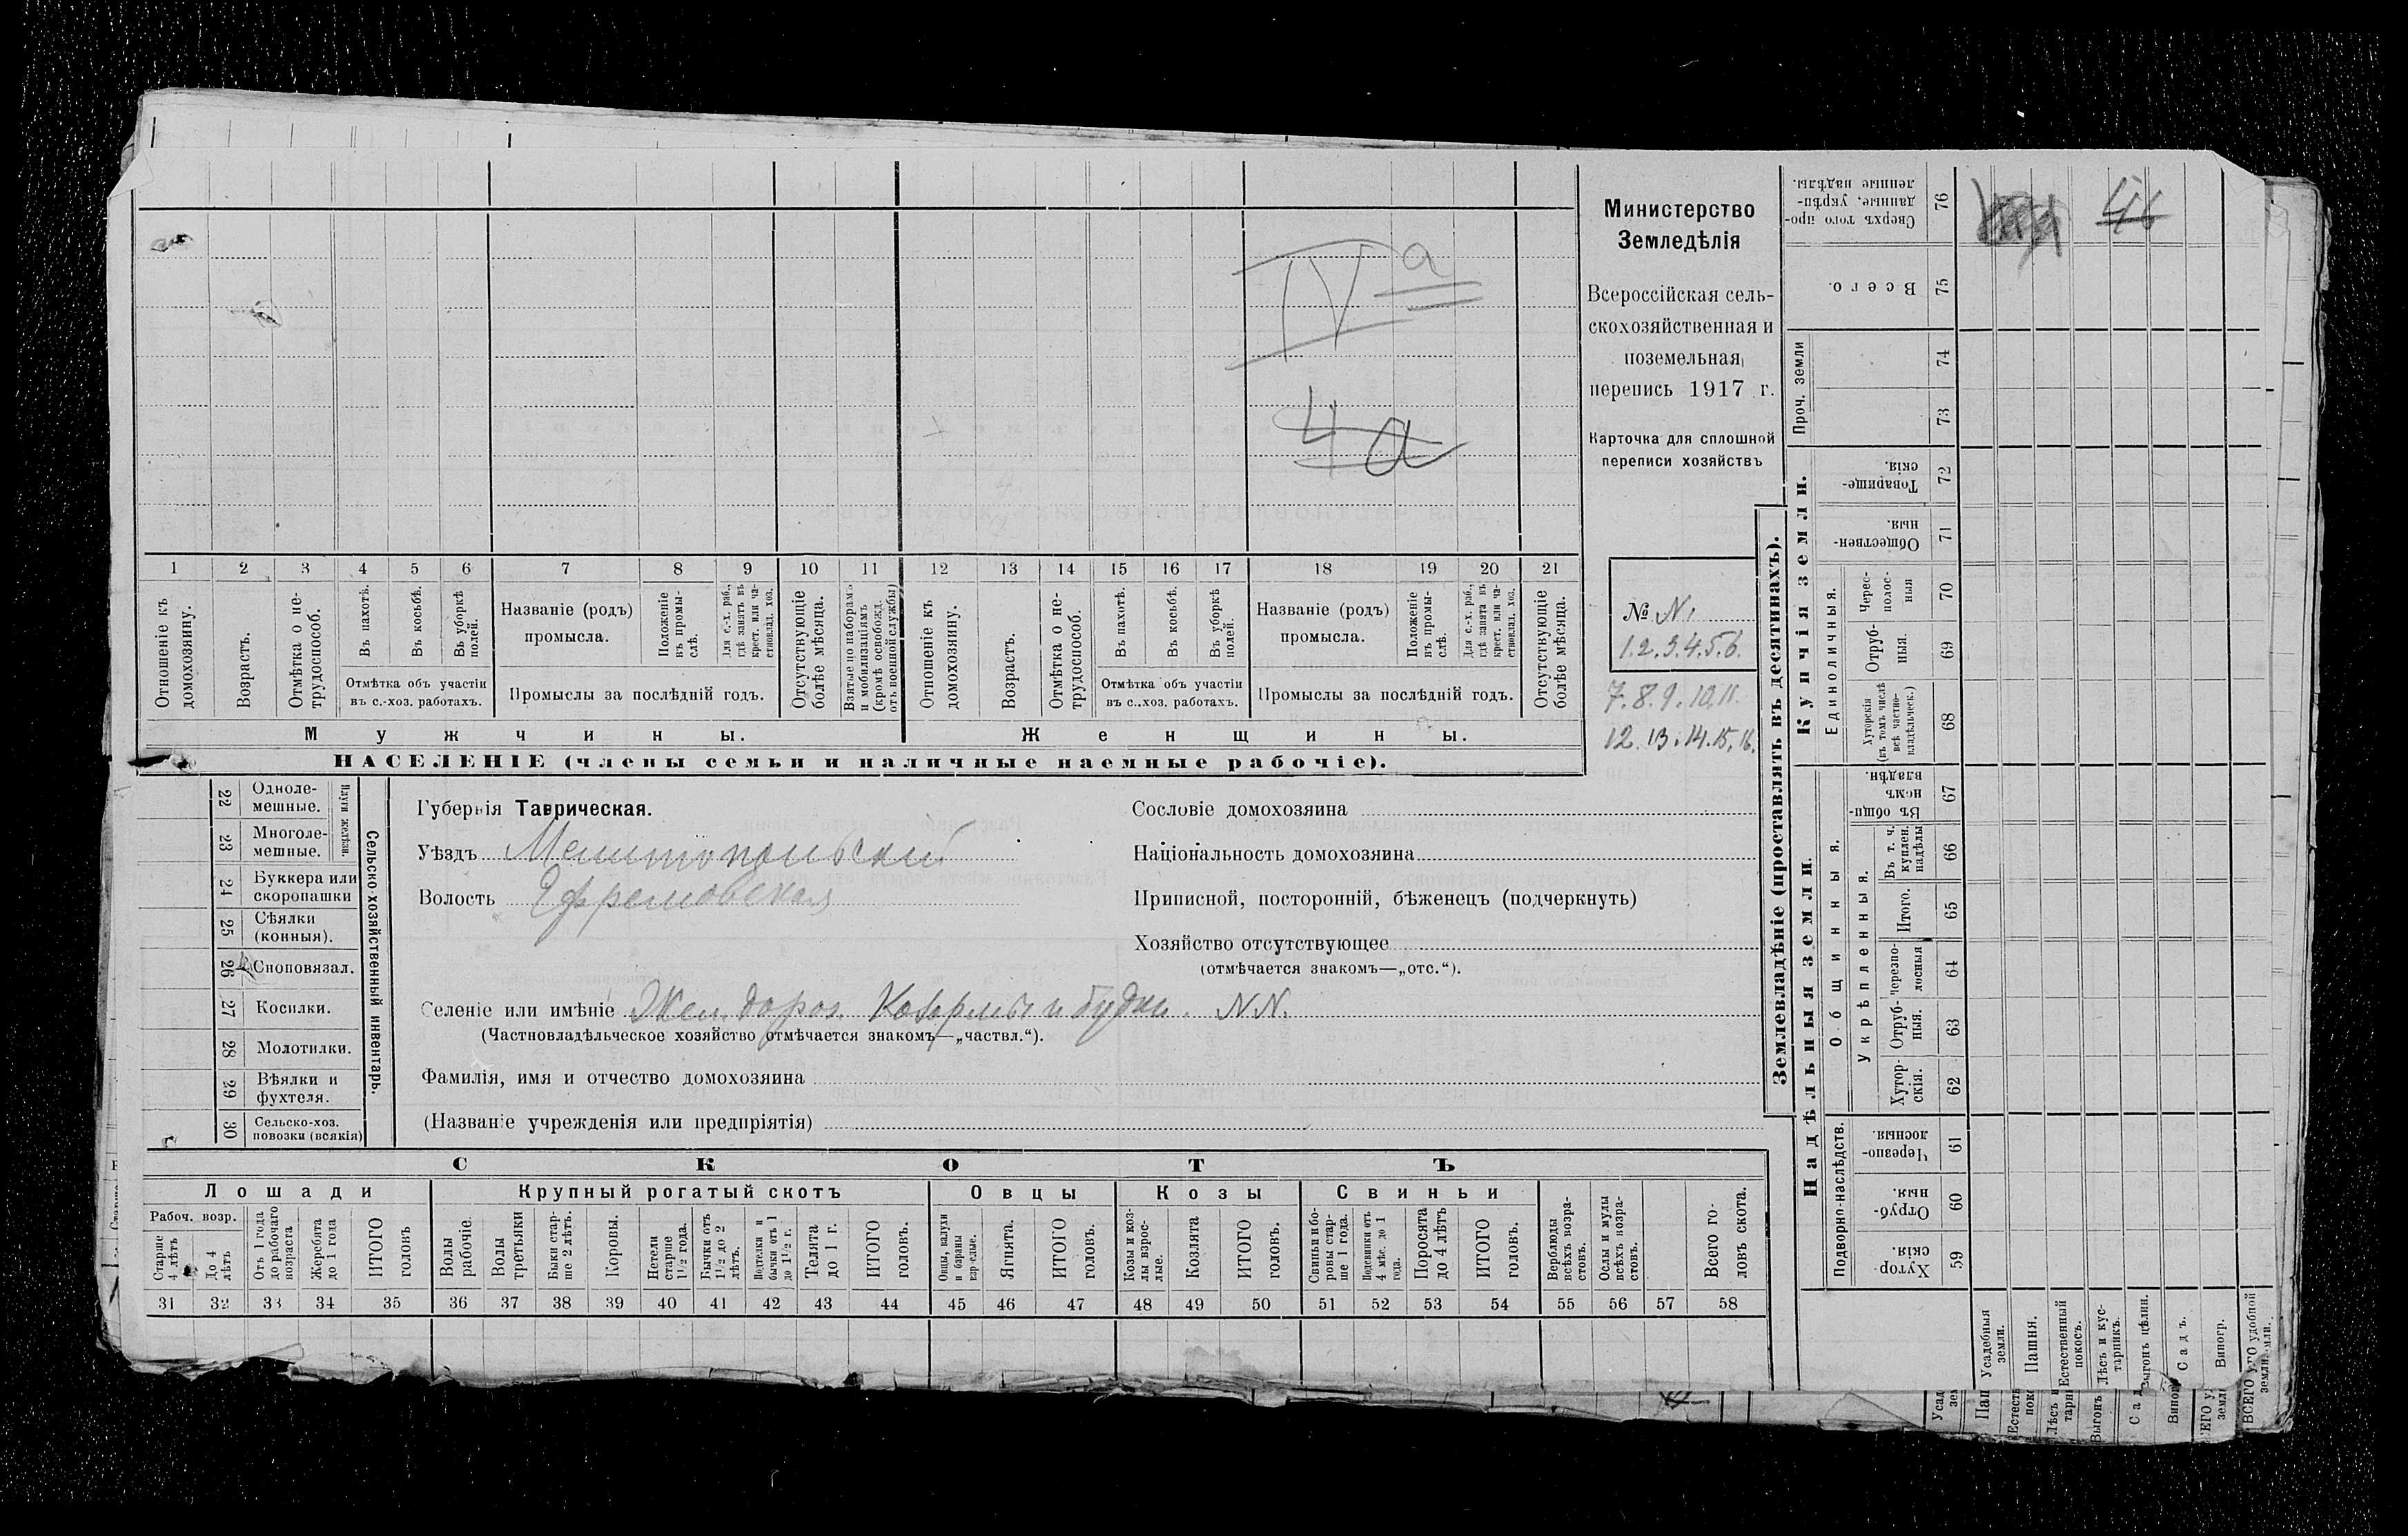 IV а
4 а
1 2 3 4 5 6 7 8 9 10 11 12 13 14 15 16 17 18 19 20 21
Отношеніе къ домохозяину.
Возрастъ.
Отмѣтка о нетрудоспособ.
Въ пахотѣ.
Въ косьбѣ.
Въ уборкѣ полей.
Отмѣтка объ участіи
въ с.-хоз. работахъ.
Названіе (родъ)
промысла.
Положеніе въ промы-слѣ.
Для с.-х. раб., гдѣ занятъ въ крест. или ча-стновлад. хоз.
Промыслы за послѣдній годъ.
Отсутствующіе болѣе мѣсяца.
Взятые по наборамъ и мобилизаціямъ (кромѣ освобожд. отъ военной службы)
Отношеніе къ домохозяину.
Возрастъ.
Отмѣтка о не-трудоспособ.
Въ пахотѣ.
Въ косьбѣ.
Въ уборкѣ полей.
Отмѣтка объ участіи
въ с.-хоз. работахъ.
Названіе (родъ)
промысла.
Положеніе въ промы-слѣ.
Для с.-х. раб., гдѣ занята въ крест. или ча-стновлад. хоз.
Промыслы за послѣдній годъ.
Отсутствующіе болѣе мѣсяца.
Мужчины. Женщины.
НАСЕЛЕНІЕ (члены семьи и наличные наемные рабочіе).
Министерство
Земледѣлія
Всероссійская сель-
скохозяйственная и
поземельная
перепись 1917 г.
Карточка для сплошной
переписи хозяйствъ
№ N.
1.2.3.4.5.6.
7.8.9.10.11.
12.13.14.15.16.
Сельско-хозяйственный инвентарь.
Плуги желѣзн.
22 Одноле-
мешные.
23 Многоле-
мешные.
24 Буккера или
скоропашки
25 Сѣялки
(конныя).
26 Сноповязал.
27 Косилки.
28 Молотилки.
29 Вѣялки и
фухтеля.
30 Сельско-хоз.
повозки (всякія)
Губернія Таврическая.
Уѣздъ Мелитопольский
Волость Ефремовская
Селеніе или имѣніе Жел. дорог. Казармы и будки. NN.
(Частновладѣльческое хозяйство отмѣчается знакомъ—„частвл.“).
Фамилія, имя и отчество домохозяина
(Названіе учрежденія или предпріятія)
Сословіе домохозяина
Національность домохозяина
Приписной, посторонній, бѣженецъ (подчеркнуть)
Хозяйство отсутствующее
(отмѣчается знакомъ—„отс.“).
СКОТЪ
Лошади Крупный рогатый скотъ Овцы Козы Свиньи
Рабоч. возр.
Старше 4 лѣтъ
До 4 лѣтъ
Отъ 1 года до рабочаго возраста
Жеребята до 1 года
ИТОГО головъ
Волы рабочіе.
Волы третьяки
Быки стар-ше 2 лѣтъ.
Коровы.
Нетели старше 1½ года.
Бычки отъ 1½ до 2 лѣтъ.
Подтелки и бычки отъ 1 до 1½ г.
Телята до 1 г.
ИТОГО головъ.
Овцы, валухи и бараны взрослые.
Ягнята.
ИТОГО головъ.
Козы и коз-лы взрос-лые.
Козлята
ИТОГО головъ.
Свиньи и бо-ровы стар-ше 1 года.
Подсвинки отъ 4 мѣс. до 1 года.
Поросята до 4 лѣтъ
ИТОГО головъ.
Верблюды всѣхъ возра-стовъ.
Ослы и мулы всѣхъ возра-стовъ.
Всего го-ловъ скота.
31 32 33 34 35 36 37 38 39 40 41 42 43 44 45 46 47 48 49 50 51 52 53 54 55 56 57 58
Землевладѣніе (проставлять въ десятинахъ).
Сверхъ того про-данные, укрѣп-ленные надѣлы. 76
46
Всего. 75
Проч. земли 74 73
Купчія земли.
Товарище-скія. 72
Обществен-ныя. 71
Единоличныя.
Черес-полос-ныя 70
Отруб-ныя. 69
Хуторскія (въ томъ числѣ всѣ частно-владѣльческ.) 68
Надѣльныя земли.
Общинныя.
Въ общи-номъ владѣн. 67
Укрѣпленныя.
Въ т. ч. куплен. надѣлы 66
Итого. 65
Черезпо-лосныя 64
Отруб-ныя. 63
Хутор-скія. 62
Подворно-наслѣдств.
Черезпо-лосныя. 61
Отруб-ныя. 60
Хутор-скія. 59
Усадебныя земли.
Пашня.
Естественный покосъ.
Лѣсъ и кус-тарникъ.
Выгонъ цѣлин.
Садъ.
Виногр.
ВСЕГО удобной земли.